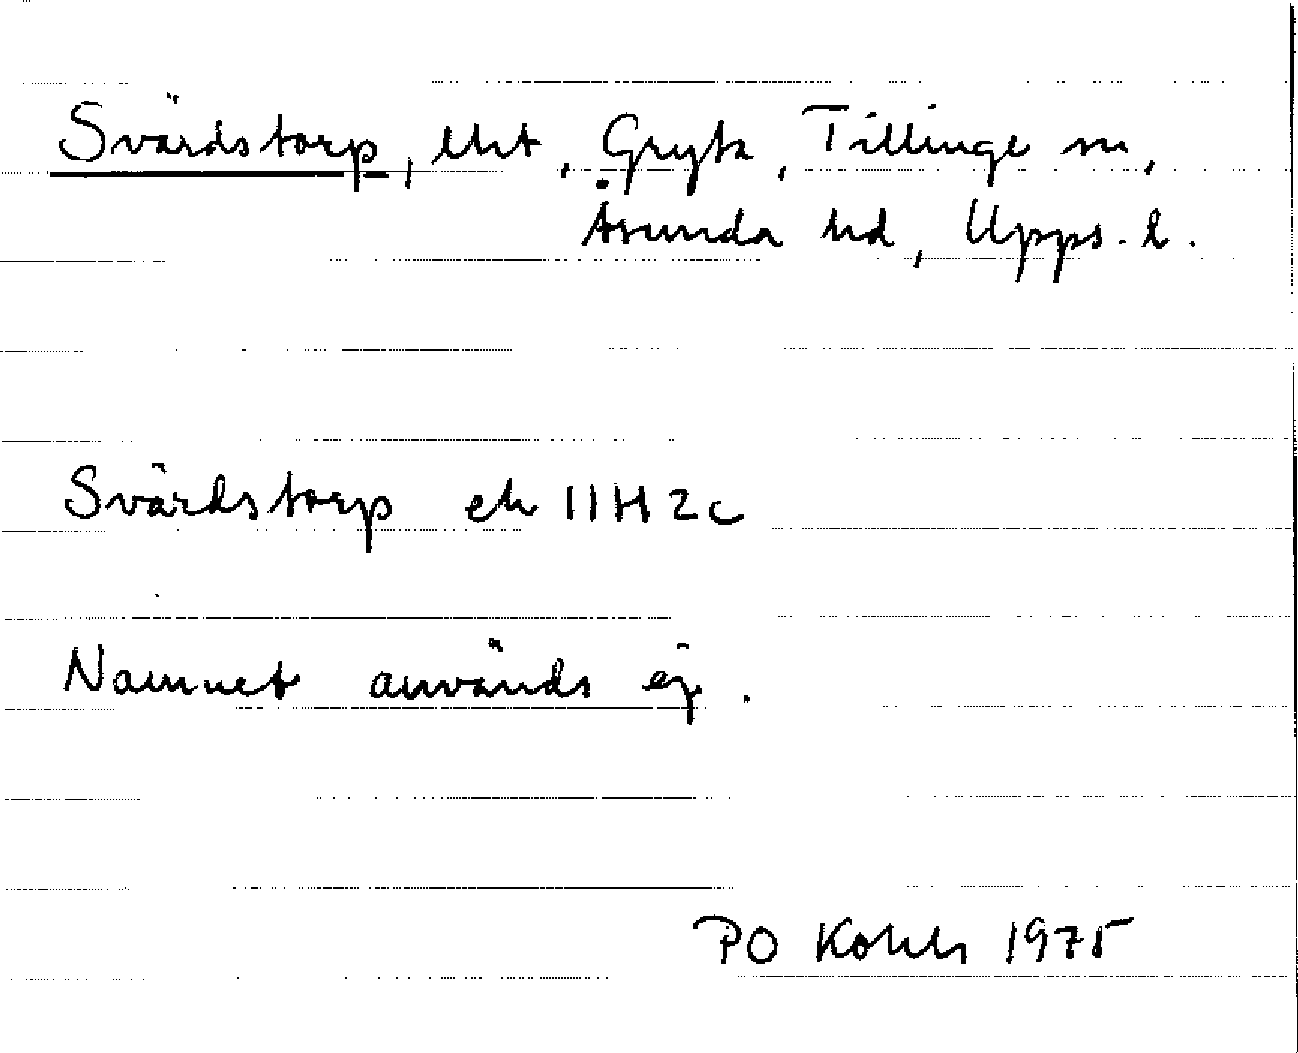 Svärdstorp, lht, Gryta, Tillinge sn,
Åsunda hd, Upps. l.
Svärdstorp ek 11H2c
Namnet används ej.
PO 1975